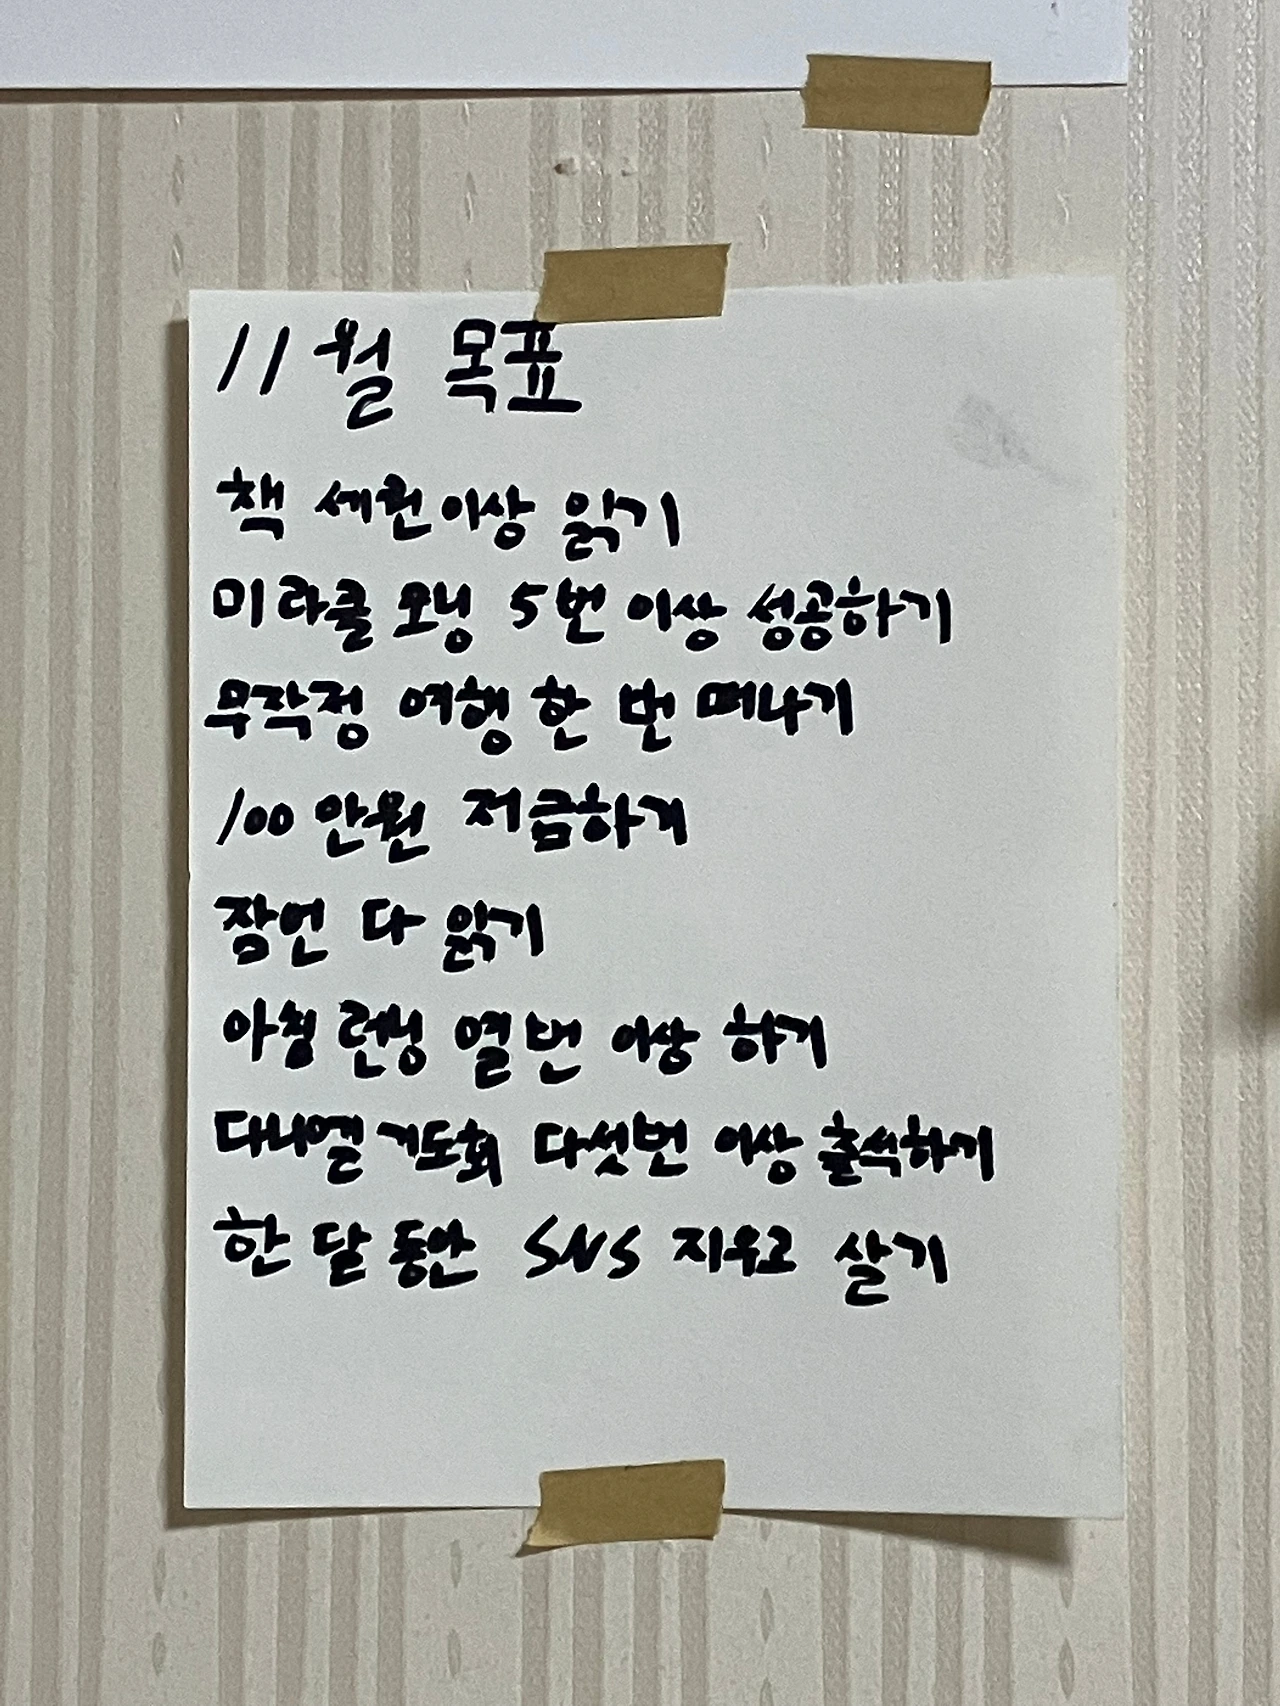 11월 목표
책 세권 이상 읽기
미라클 모닝 5번 이상 성공하기
무작정 여행 한 번 떠나기
100만원 저금하기
잠언 다 읽기
아침 런닝 열번 이상 하기
다니엘 기도회 다섯번 이상 출석하기
한 달 동안 SNS 지우고 살기